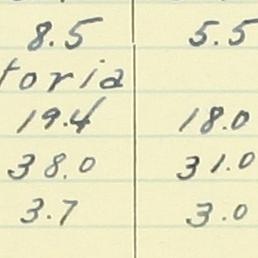 8.5 5.5
toria
19.4 18.0
38.0 31.0
3.7 3.0